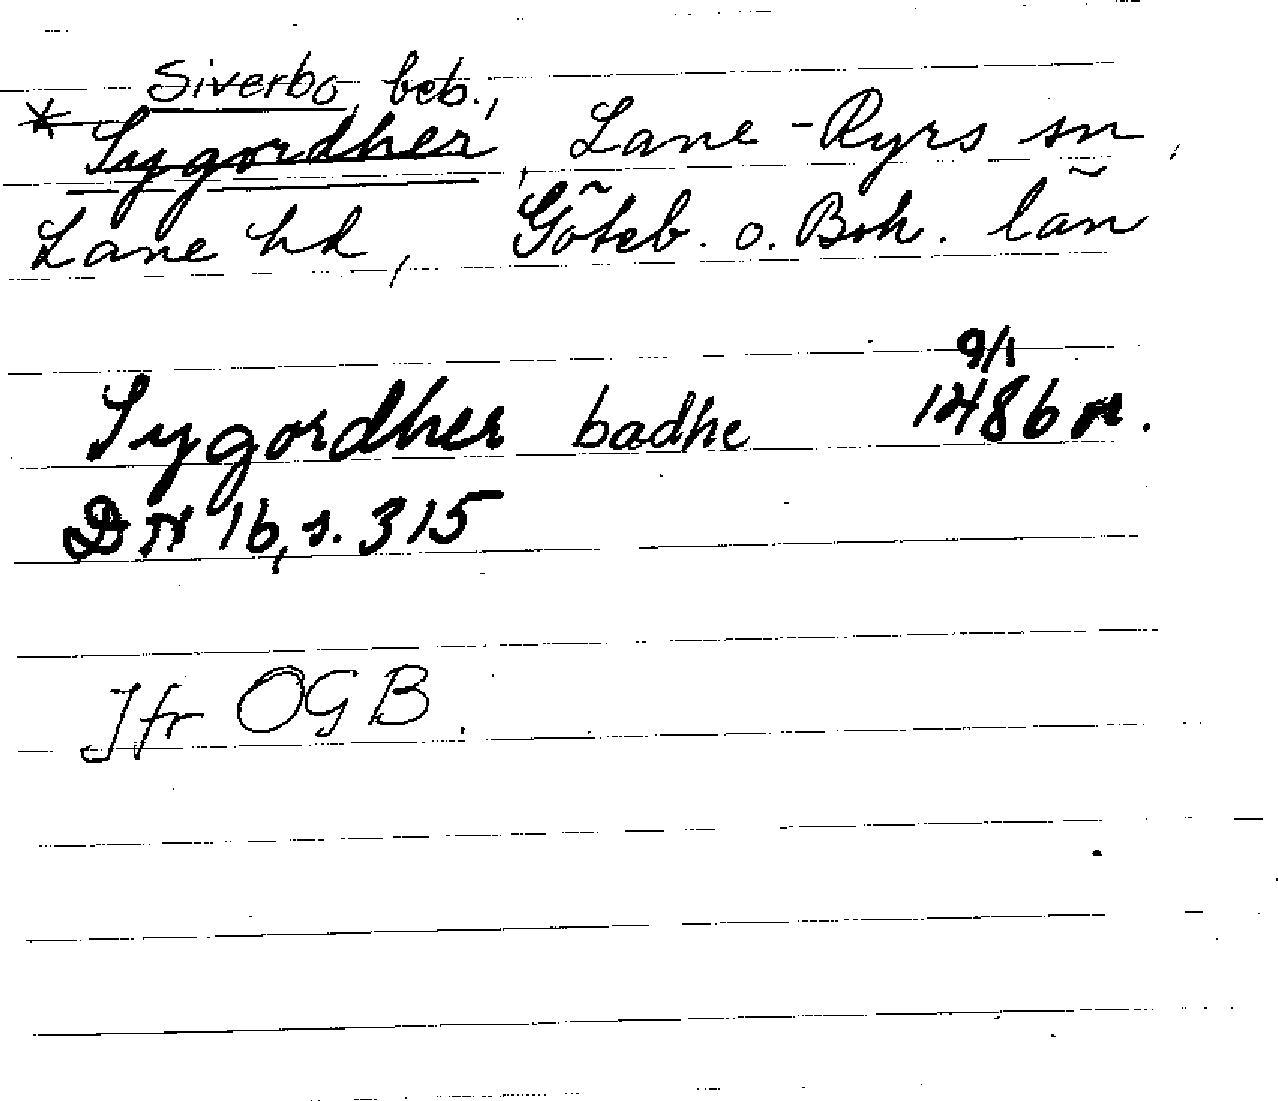 Siverbo, beb.,
* Sygordher, Lane-Ryrs sn,
Lane hd, Göteb. o. Boh. län
9/1
Sygordher badhe 1486 or.
DN 16, s. 315
Jfr OGB.